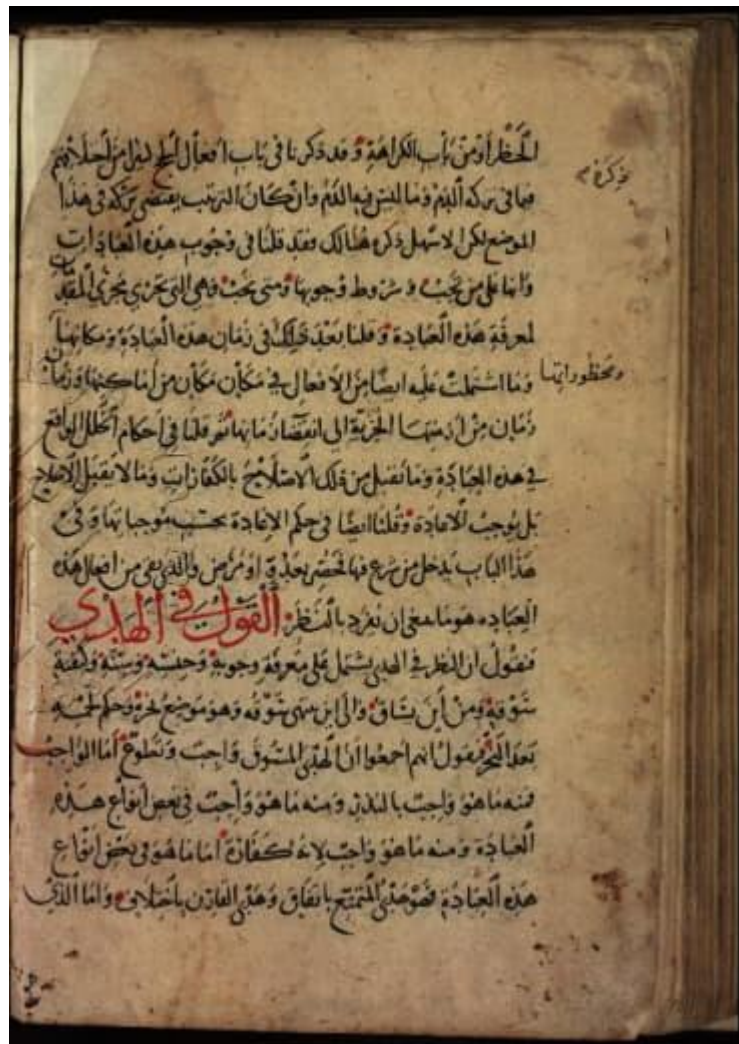 الحظر أو من باب الكراهة وقد ذكرنا في باب أفعال الحج لمزا من اختلافهم
فيما في تركه الدم وما ليس فيه الدم وان كان الترتيب يقتضي تركه في هذا
ذكره
الموضع لكن الاسهل ذكره هنالك وقد قلنا في وجوب هذه العبادات
وأنها على من تجب وشروط وجوبها ومتى تجب وهي التي تجري مجرى المقدمات
لمعرفة هذه العبادة وقلنا بعد ذلك في زمان هذه العبادة ومكانها
ومحظوراتها
وما اشتملت عليه ايضا من الافعال في مكان مكان من أماكنها وزمان
زمان من أزمنتها الجزية الى انقضاء زمانها ثم قلنا في أحكام التحلل الواقع
في هذه العبادة وما يقبل من ذلك الاصلاح بالكفارات وما لا يقبل الاصلاح
بل يوجب الاعادة وقلنا ايضا في حكم الاعادة بحسب موجباتها وفي
هذا الباب يدخل من شرع فيها فحصر بعدو او مرض والذي بقي من افعال هذه
العباده هو ما ينبغي ان يفرد بالنظر القول في الهدي
فنقول ان النظر في الهدي يشتمل على معرفة وجوبه وجنسه وسنه وكيفية
سوقه ومن أين يساق والى اين ينتهي سوقه وهو موضع نحره وحكم لحمه
بعد النحر فنقول انهم اجمعوا ان الهدي المسوق واجب وتطوع أما الواجب
فمنه ما هو واجب بالنذر ومنه ما هو واجب في بعض أنواع هذه
العبادة ومنه ما هو واجب لانه كفارة أما ما هو في بعض أنواع
هذه العبادة فهو هدي المتمتع باتفاق وهدي القارن باختلاف وأما الذي